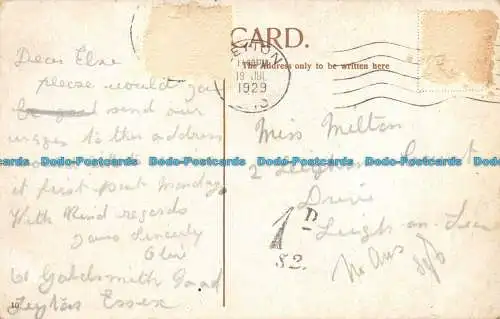 CARD.
The Address only to be written here
LEYTON
19 JUL
1929
Dear Elsie
please would you
send our
wages to this address
at first post Monday
With Kind regards
Yours Sincerely
Elsie
61 Goldsmith Road
Leyton Essex
Miss Melton
2 Leigham Court
Drive
Leigh-on-Sea
1D
S2.
No Ans
10
Dodo-Postcards Dodo-Postcards Dodo-Postcards Dodo-Postcards Dodo-Postcards